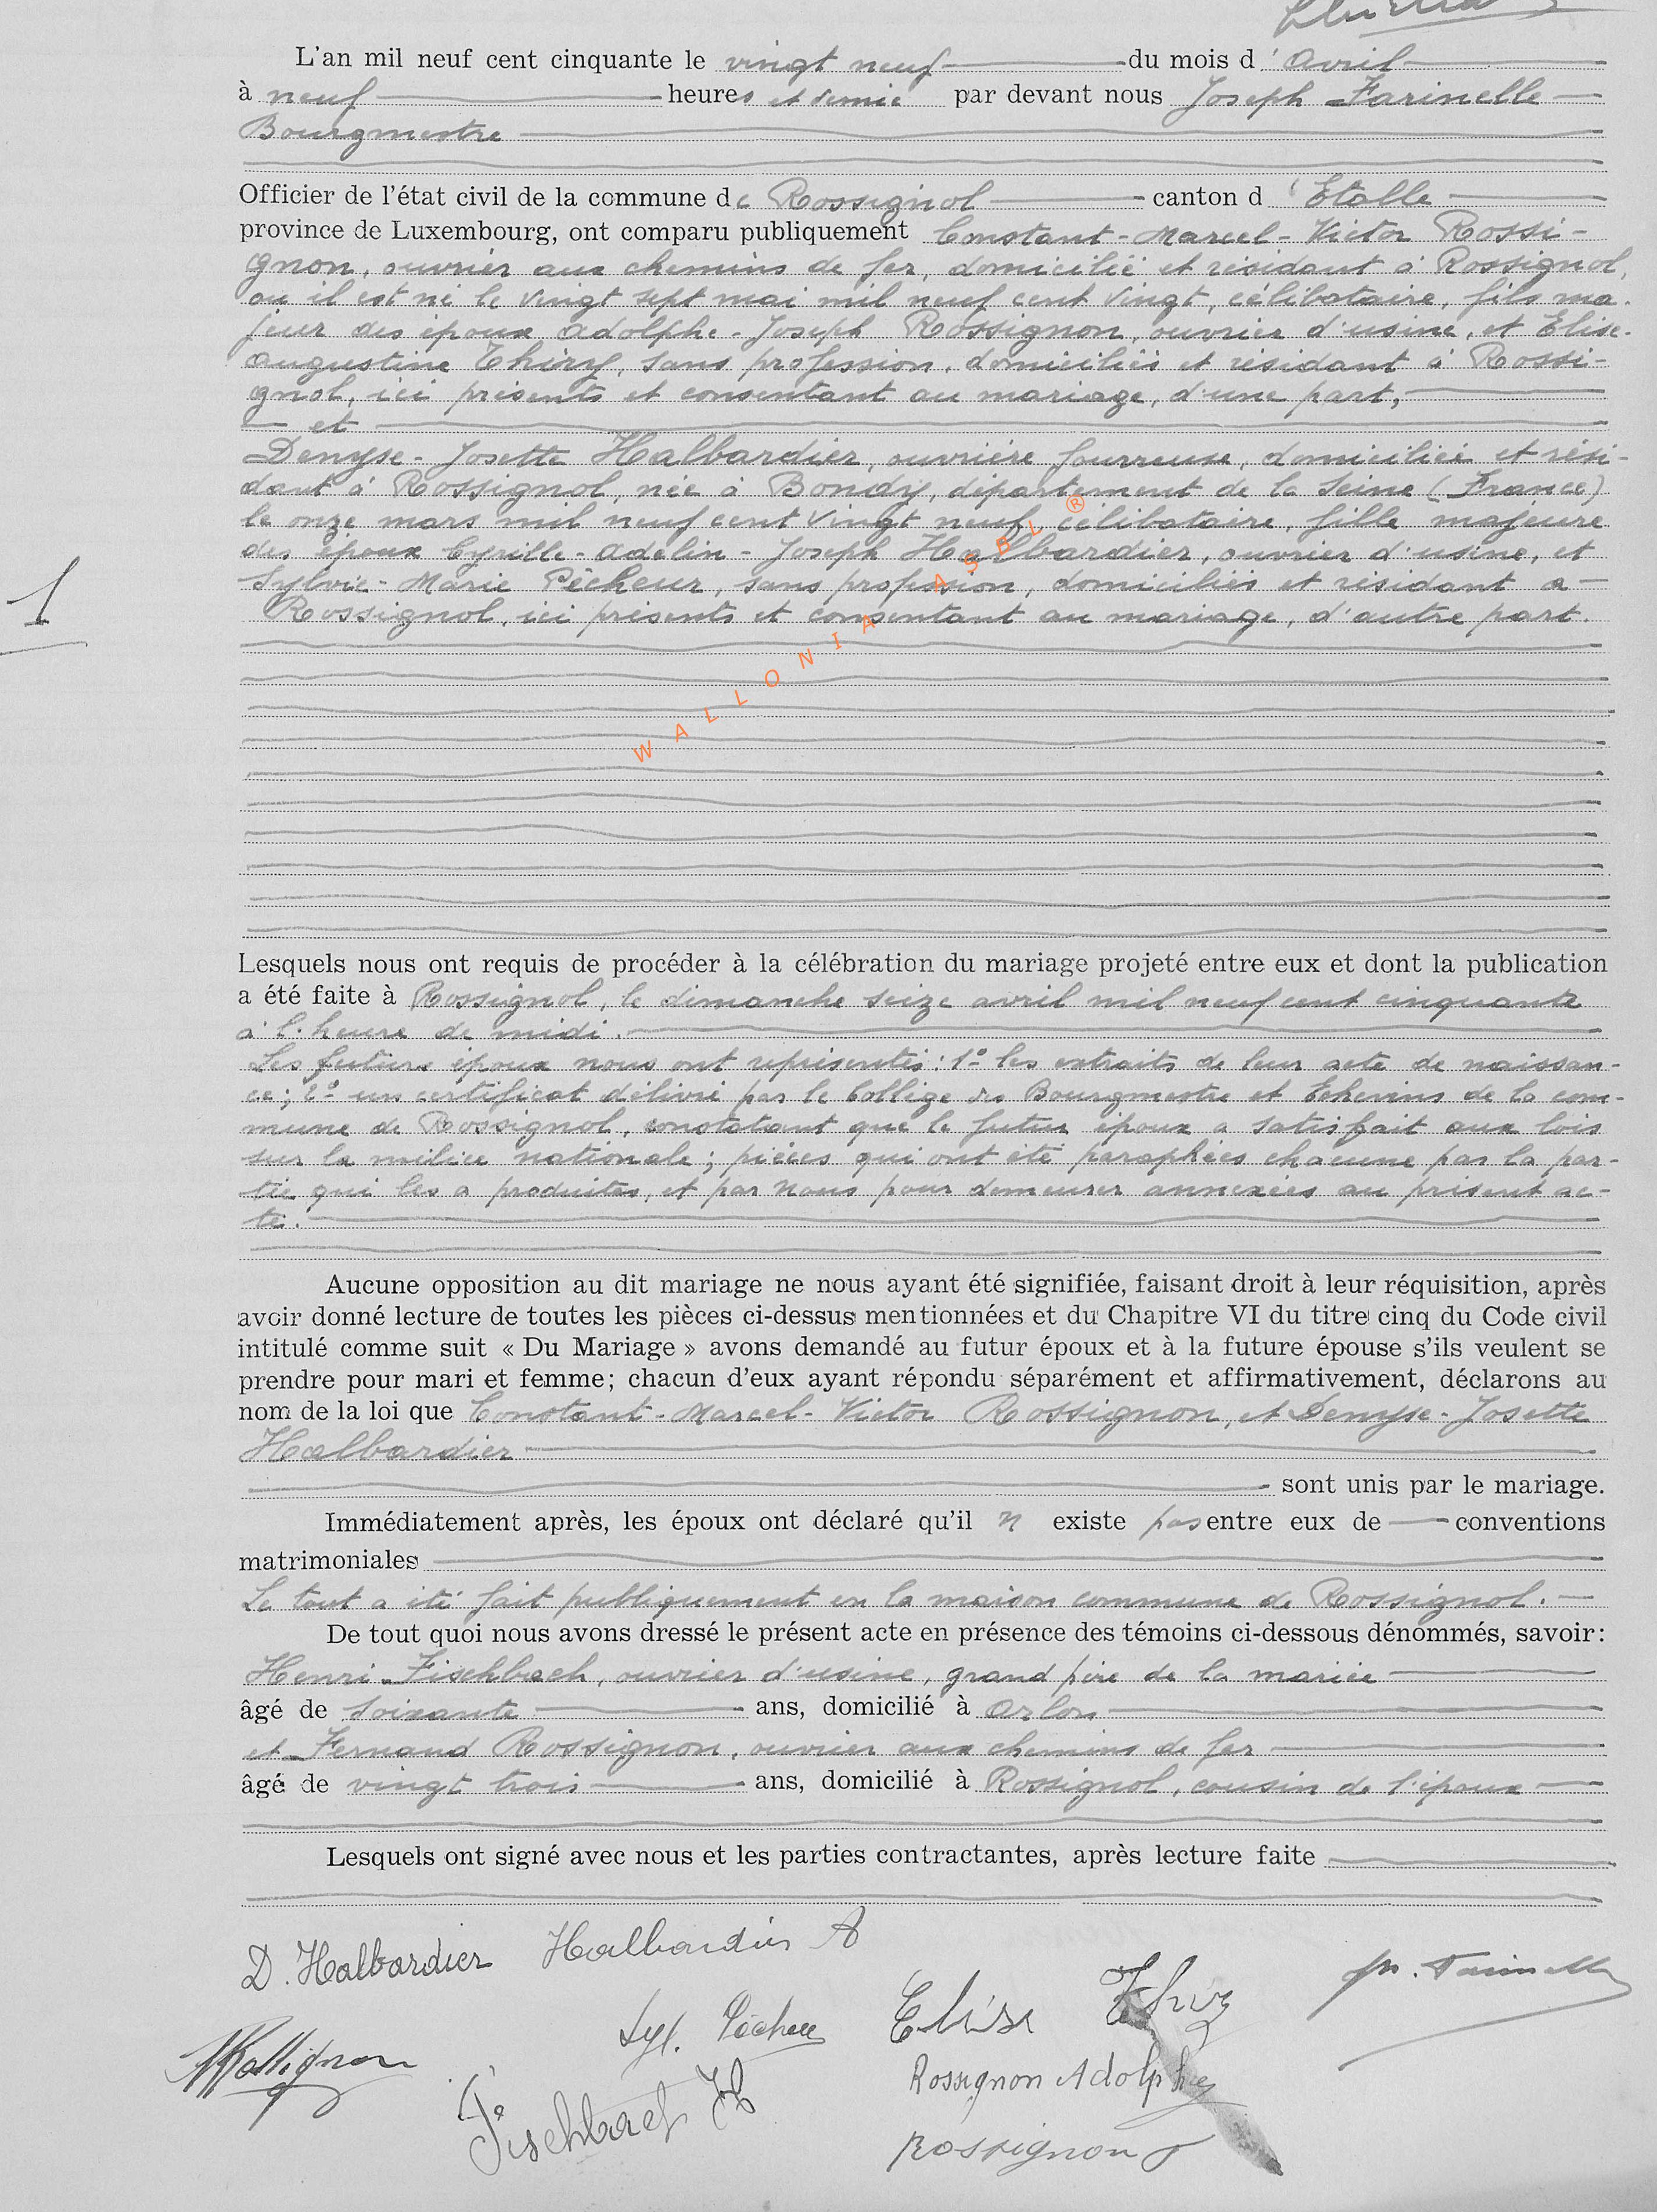 L'an mil neuf cent cinquante le vingt neuf du mois d' Avril
à neuf heures et demie par devant nous Joseph Farinelle
Bourgmestre
Officier de l'état civil de la commune de Rossignol canton d' Etalle
province de Luxembourg, ont comparu publiquement Constant-Marcel-Victor Rossi-
gnon, ouvrier aux chemins de fer, domicilié et résidant à Rossignol,
ou il est né le vingt sept mai mil neuf cent vingt, célibataire, fils ma-
jeur des époux Adolphe-Joseph Rossignon, ouvrier d'usine, et Elise-
Augustine Thiry, sans profession, domiciliés et résidant à Rossi-
gnol, ici présents et consentant au mariage, d'une part,
et
Denyse-Josette Halbardier, ouvrière fourreuse, domiciliée et rési-
dant à Rossignol, née à Bondy, département de la Seine (France)
le onze mars mil neuf cent vingt neuf, célibataire, fille majeure
des époux Cyrille-Adelin-Joseph Halbardier, ouvrier d'usine, et
Sylvie-Marie Pêcheur, sans profession, domiciliés et résidant à
Rossignol, ici présents et consentant au mariage, d'autre part.
1
WALLONIA ASBL ®
Lesquels nous ont requis de procéder à la célébration du mariage projeté entre eux et dont la publication
a été faite à Rossignol, le dimanche seize avril mil neuf cent cinquante
à l'heure de midi.
Les futurs époux nous ont représentés: 1° les extraits de leur acte de naissan-
ce; 2° un certificat délivré par le Collège des Bourgmestre et Echevins de la com-
mune de Rossignol, constatant que le futur époux a satisfait aux lois
sur la milice nationale; pièces qui ont été paraphées chacune par la par-
tie qui les a produites, et par nous pour demeurer annexées au présent ac-
te.
Aucune opposition au dit mariage ne nous ayant été signifiée, faisant droit à leur réquisition, après
avoir donné lecture de toutes les pièces ci-dessus mentionnées et du Chapitre VI du titre cinq du Code civil
intitulé comme suit « Du Mariage » avons demandé au futur époux et à la future épouse s'ils veulent se
prendre pour mari et femme; chacun d'eux ayant répondu séparément et affirmativement, déclarons au
nom de la loi que Constant-Marcel-Victor Rossignon, et Denyse-Josette
Halbardier
sont unis par le mariage.
Immédiatement après, les époux ont déclaré qu'il n existe pas entre eux de conventions
matrimoniales
Le tout a été fait publiquement en la maison commune de Rossignol.
De tout quoi nous avons dressé le présent acte en présence des témoins ci-dessous dénommés, savoir:
Henri Fischbach, ouvrier d'usine, grand père de la mariée
âgé de soixante ans, domicilié à Arlon
et Fernand Rossignon, ouvrier aux chemins de fer
âgé de vingt trois ans, domicilié à Rossignol, cousin de l'époux
Lesquels ont signé avec nous et les parties contractantes, après lecture faite
D. Halbardier Halbardier A
Syl. Pêcheur Elise Thiry
Rossignon
Fischbach H
Rossignon Adolphe
Rossignon